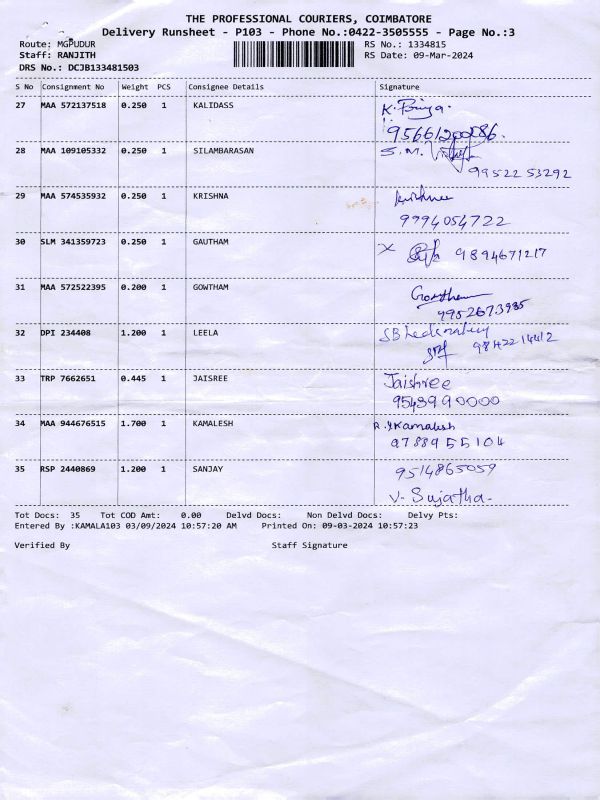 THE PROFESSIONAL COURIERS, COIMBATORE
Delivery Runsheet - P103 - Phone No.:0422-3505555 - Page No.:3
Route: MGPUDUR RS No.: 1334815
Staff: RANJITH RS Date: 09-Mar-2024
DRS No.: DCJB133481503
S No Consignment No Weight PCS Consignee Details Signature
27 MAA 572137518 0.250 1 KALIDASS K. Priya.
28 MAA 109105332 0.250 1 SILAMBARASAN S.M.
99522 53292
29 MAA 574535932 0.250 1 KRISHNA Krishnee
9994054722
30 SLM 341359723 0.250 1 GAUTHAM X 9894671217
31 MAA 572522395 0.200 1 GOWTHAM Gowtham
9952673985
32 DPI 234408 1.200 1 LEELA SB
9842214412
33 TRP 7662651 0.445 1 JAISREE Jaishree
9543990000
34 MAA 944676515 1.700 1 KAMALESH Kamalesh
9788955104
35 RSP 2440869 1.200 1 SANJAY 9514865059
V. Sujatha.
Tot Docs: 35 Tot COD Amt: 0.00 Delvd Docs: Non Delvd Docs: Delvy Pts:
Entered By :KAMALA103 03/09/2024 10:57:20 AM Printed On: 09-03-2024 10:57:23
Verified By Staff Signature